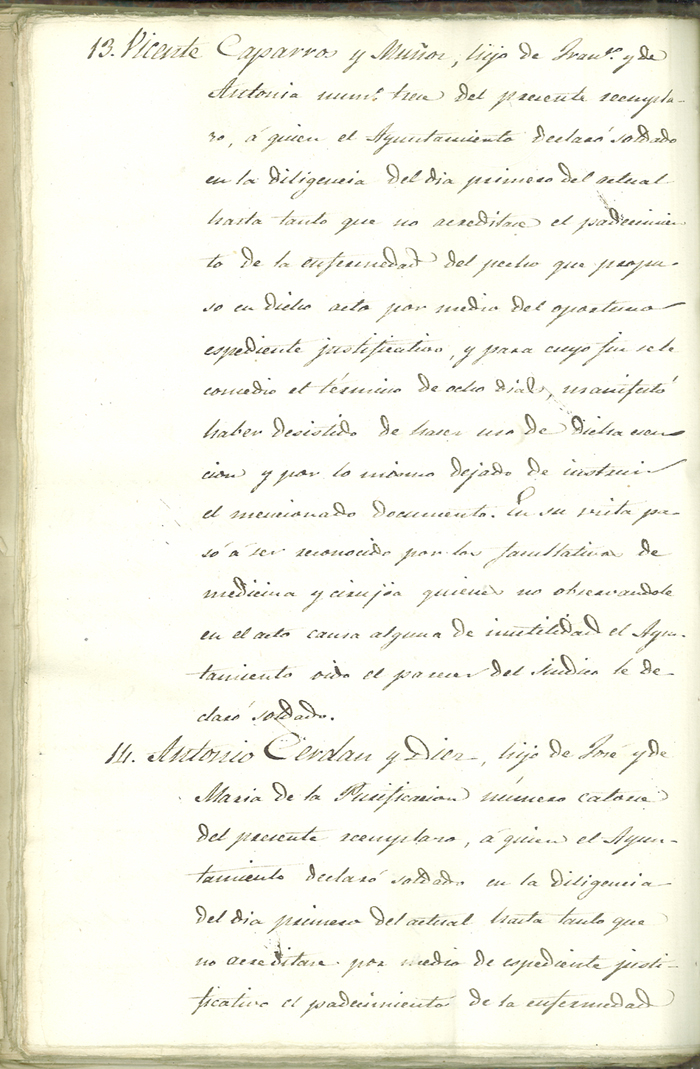 13. Vicente Caparros y Muñoz, hijo de Franco. y de
Antonia num.º trece del presente reempla-
zo, á quien el Ayuntamiento declaró soldado
en la diligencia del dia primero del actual
hasta tanto que no acreditase el padecimien
to de la enfermedad del pecho que propu-
so en dicho acto por medio del oportuno
espediente justificativo, y para cuyo fin se le
concedio el término de ocho dias, manifestó
haber desistido de hacer uso de dicha esen
cion y por lo mismo dejado de instruir
el mencionado documento. En su vista pa-
só á ser reconocido por los facultativos de
medicina y cirujia quienes no observandole
en el acto causa alguna de inutilidad el Ayun-
tamiento oido el parecer del Sindico le de-
claró soldado.
14. Antonio Cerdan y Diez, hijo de José y de
Maria de la Purificacion número catorce
del presente reemplazo, á quien el Ayun-
tamiento declaró soldado en la diligencia
del dia primero del actual hasta tanto que
no acreditase por medio de espediente justi-
ficativo el padecimiento de la enfermedad